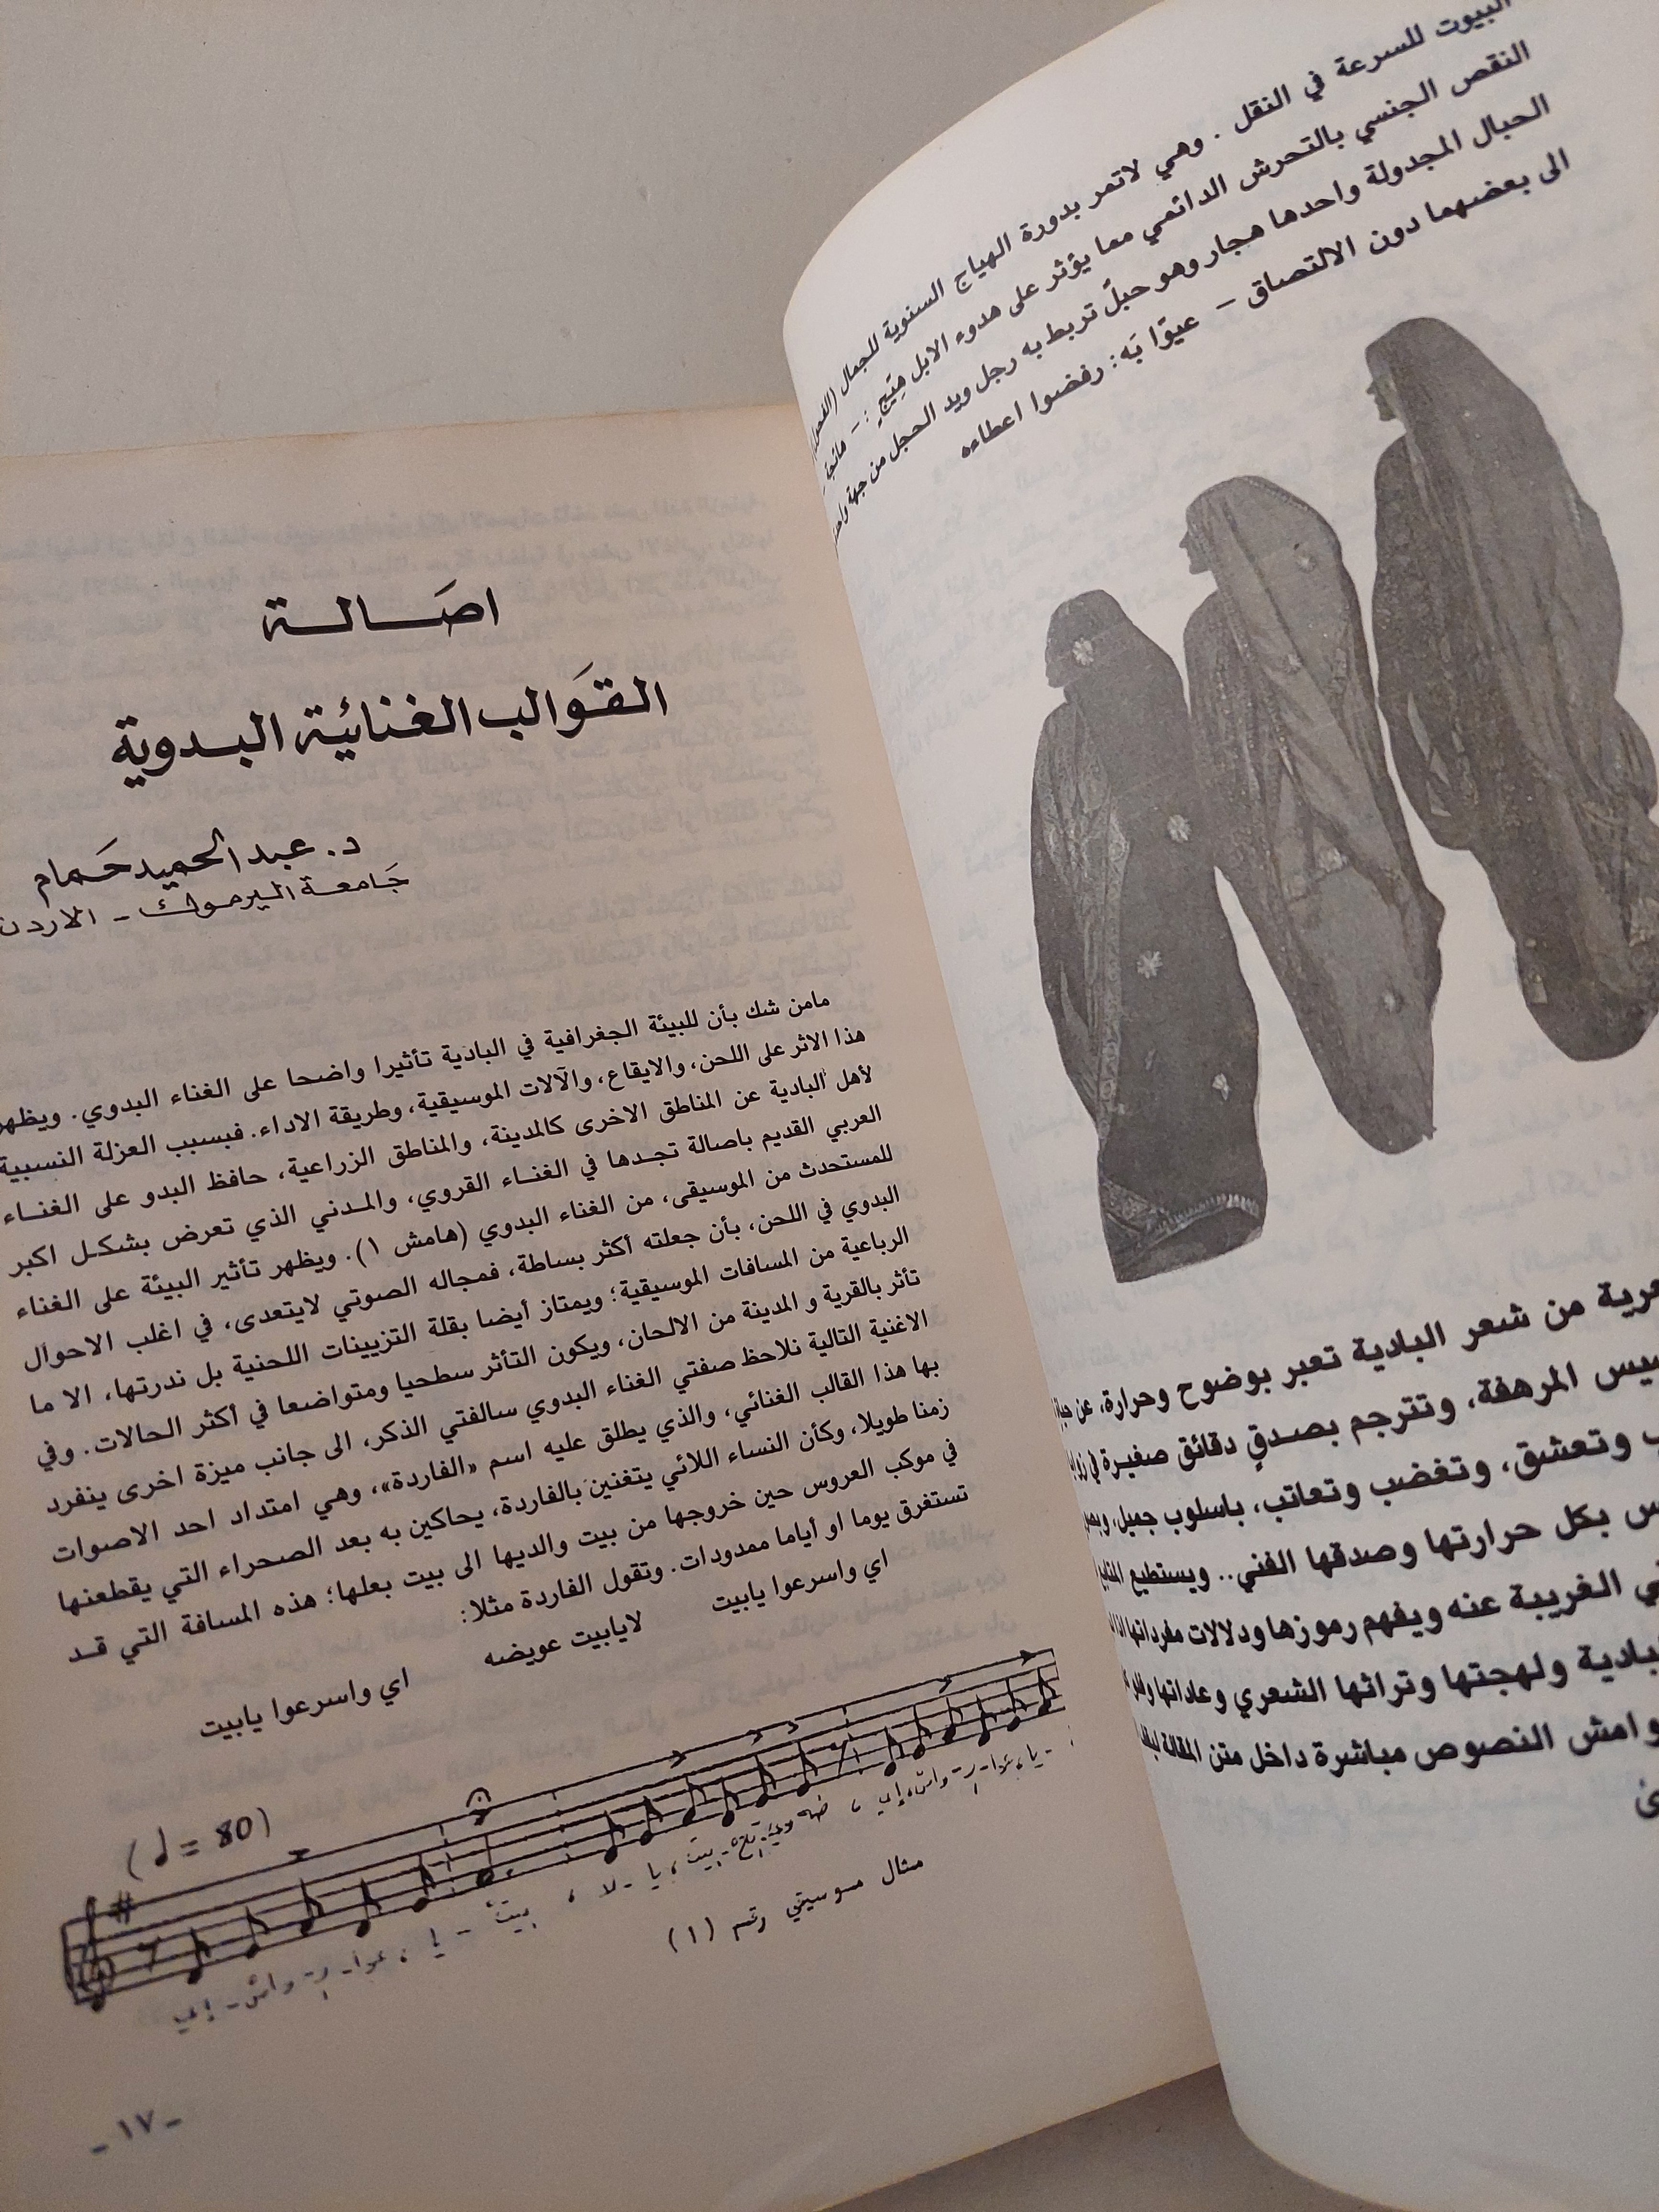 البيوت للسرعة في النقل . وهي لاتمر بدورة الهياج السنوية للجمال
النقص الجنسي بالتحرش الدائمي مما يؤثر على هدوء الابل
الحبال المجدولة واحدها هجار وهو حبلٌ تربط به رجل ويد الحجل من جهة
الى بعضهما دون الالتصاق – عيوّا بَه : رفضوا اعطاءه
من شعر البادية تعبر بوضوح وحرارة، عن
المرهفة، وتترجم بصدقٍ دقائق صغيرة في
وتعشق، وتغضب وتعاتب، باسلوب جميل،
بكل حرارتها وصدقها الفني.. ويستطيع
الغريبة عنه ويفهم رموزها ودلالات مفرداتها
ولهجتها وتراثها الشعري وعاداتها
النصوص مباشرة داخل متن المقالة
اصالة
القوالب الغنائية البدوية
د. عبد الحميد حمام
جامعة اليرموك - الاردن
مامن شك بأن للبيئة الجغرافية في البادية تأثيرا واضحا على الغناء البدوي. ويظهر
هذا الاثر على اللحن، والايقاع، والآلات الموسيقية، وطريقة الاداء. فبسبب العزلة النسبية
لأهل البادية عن المناطق الاخرى كالمدينة، والمناطق الزراعية، حافظ البدو على الغناء
العربي القديم باصالة تجدها في الغناء القروي، والمدني الذي تعرض بشكل اكبر
للمستحدث من الموسيقى، من الغناء البدوي (هامش ١). ويظهر تأثير البيئة على الغناء
البدوي في اللحن، بأن جعلته أكثر بساطة، فمجاله الصوتي لايتعدى، في اغلب الاحوال
الرباعية من المسافات الموسيقية؛ ويمتاز أيضا بقلة التزيينات اللحنية بل ندرتها، الا ما
تأثر بالقرية و المدينة من الالحان، ويكون التأثر سطحيا ومتواضعا في أكثر الحالات. وفي
الاغنية التالية نلاحظ صفتي الغناء البدوي سالفتي الذكر، الى جانب ميزة اخرى ينفرد
بها هذا القالب الغنائي، والذي يطلق عليه اسم «الفاردة»، وهي امتداد احد الاصوات
زمنا طويلا، وكأن النساء اللائي يتغنين بالفاردة، يحاكين به بعد الصحراء التي يقطعنها
في موكب العروس حين خروجها من بيت والديها الى بيت بعلها؛ هذه المسافة التي قد
تستغرق يوما او أياما ممدودات. وتقول الفاردة مثلا:
اي واسرعوا يابيت
لايابيت عويضه
اي واسرعوا يابيت
(♩ = 80)
مثال موسيقي رقم (١)
- ١٧ -